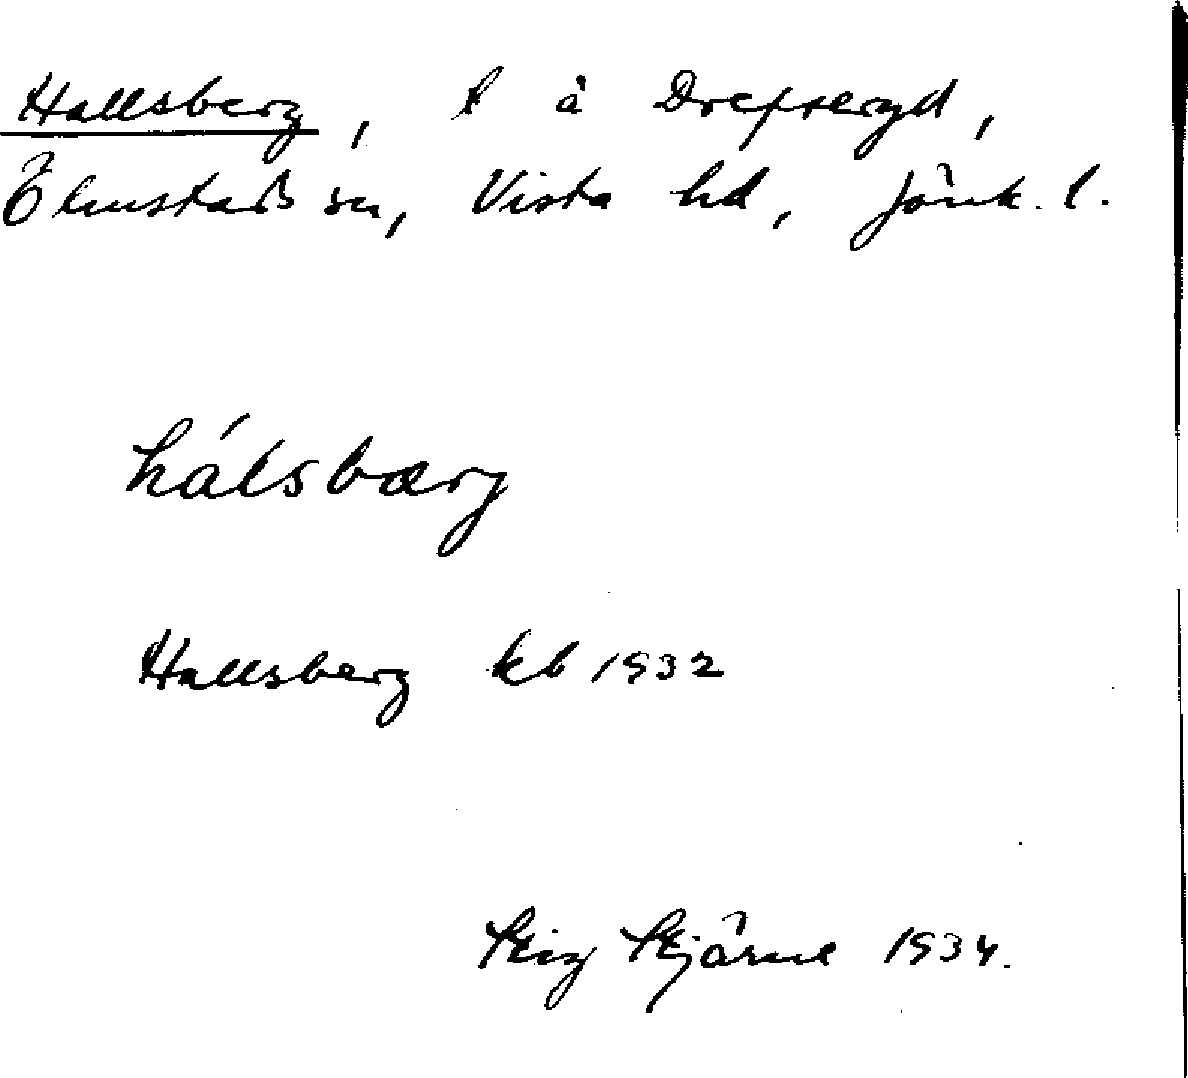 Hallsberg, t å Drefseryd,
Ölmstads sn, Vista hd, Jönk. l.
hálsbærj
Hallsberg kb 1932
Stig Stjärne 1934.